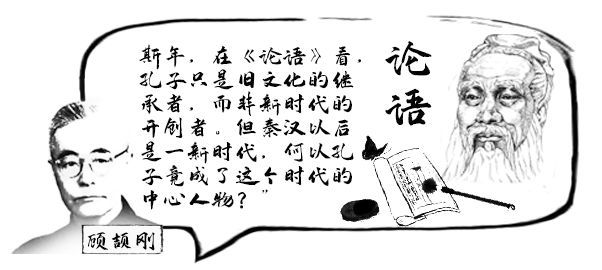 斯年，在《论语》看，
孔子只是旧文化的继
承者，而非新时代的
开创者。但秦汉以后
是一新时代，何以孔
子竟成了这个时代的
中心人物？”
论语
顾颉刚